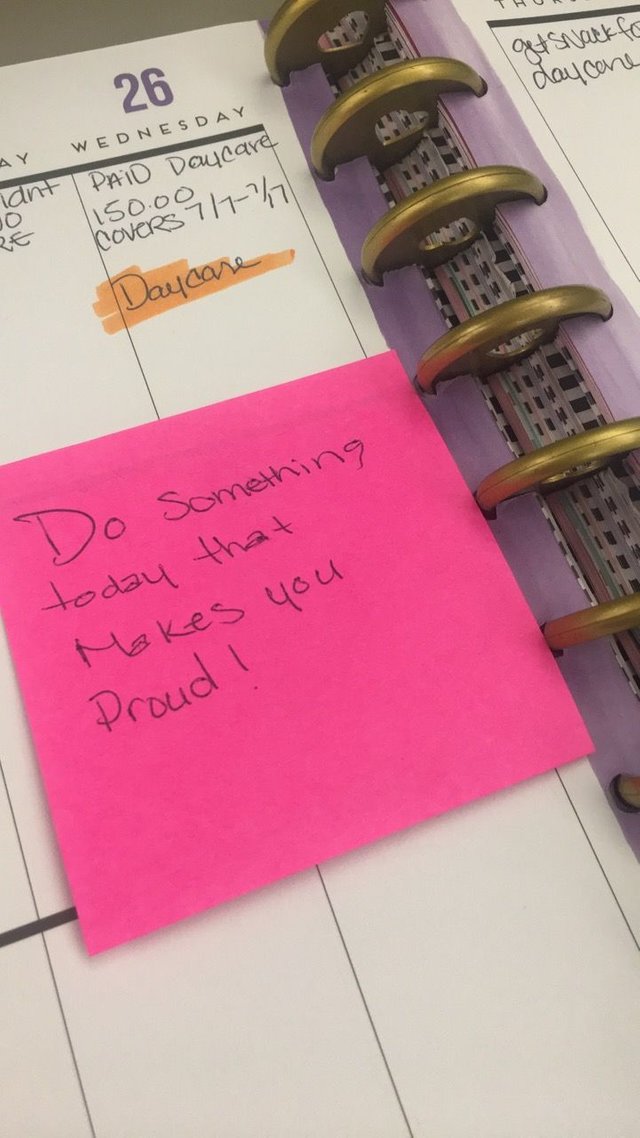 26
WEDNESDAY
AY
PAID DAYCARE
150.00
COVERS 7/17-7/17
Daycare
get snack fo
daycare
Do Something
today that
Makes you
Proud!